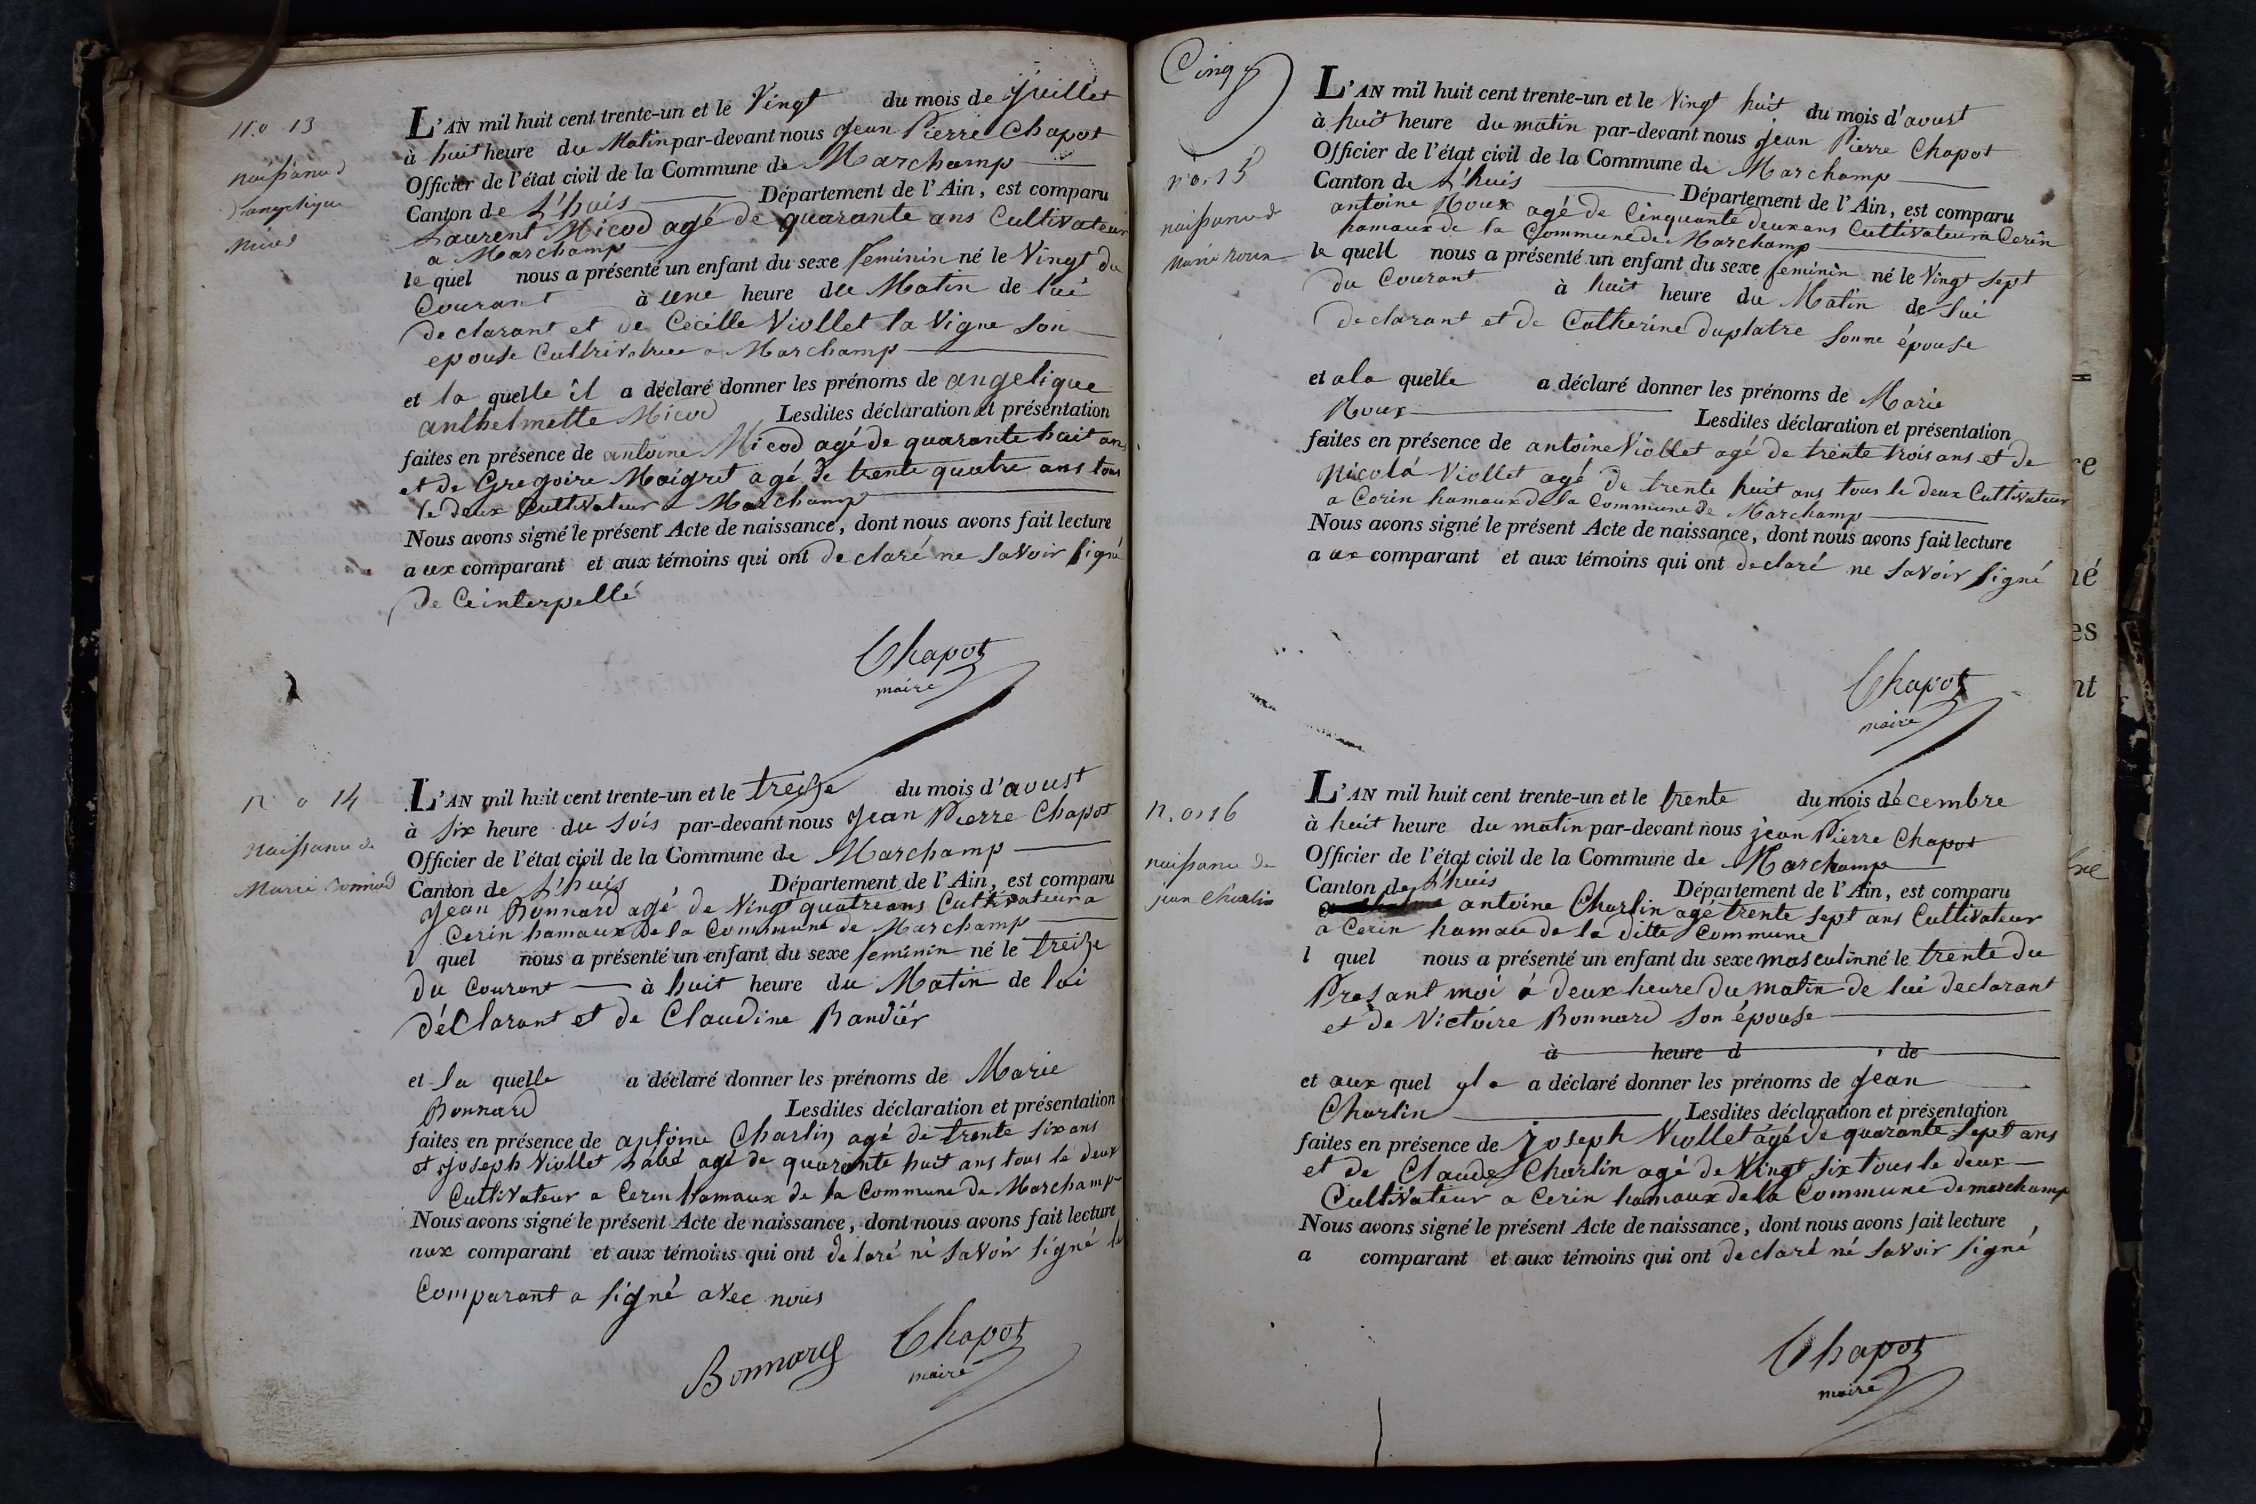 N.o 13
naissance d
d'angelique
Micod
L'AN mil huit cent trente-un et le Vingt du mois de Juillet
à huit heure du Matin par-devant nous Jean Pierre Chapot
Officier de l'état civil de la Commune de Marchamp
Canton de L'huis Département de l'Ain, est comparu
Laurent Micod agé de quarante ans Cultivateur
a Marchamp
le quel nous a présenté un enfant du sexe feminin né le Vingt du
Courant à une heure du Matin de lui
declarant et de Cecille Viollet la Vigne son
epouse Cultivatrice a Marchamp
et la quelle il a déclaré donner les prénoms de angelique
anthelmette Micod Lesdites déclaration et présentation
faites en présence de antoine Micod agé de quarante huit ans
et de Gregoire Maigret agé de trente quatre ans tous
le deux Cultivateur a Marchamp
Nous avons signé le présent Acte de naissance, dont nous avons fait lecture
aux comparant et aux témoins qui ont declaré ne savoir signé
de Ceinterpellé
Chapot
maire
n o 14
naissance de
Marie Bonnard
L'AN mil huit cent trente-un et le treize du mois d'avust
à six heure du sois par-devant nous Jean Pierre Chapot
Officier de l'état civil de la Commune de Marchamp
Canton de L'huis Département de l'Ain, est comparu
Jean Bonnard agé de Vingt quatre ans Cultivateur a
Cerin hamaux de la Commune de Marchamp
l quel nous a présenté un enfant du sexe feminin né le treize
du Courant à huit heure du Matin de lui
déClarant et de Claudine Bandier
et la quelle a déclaré donner les prénoms de Marie
Bonnard Lesdites déclaration et présentation
faites en présence de antoine Charlin agé de trente six ans
et Joseph Viollet agé de quarante huit ans tous le deux
Cultivateur a Cerin hamaux de la Commune de Marchamp
Nous avons signé le présent Acte de naissance, dont nous avons fait lecture
aux comparant et aux témoins qui ont délaré né savoir signé le
Comparant a signé avec nous
Bonnard Chapot
maire
Cinq
n.o. 15
naissance d
Marie roux
L'AN mil huit cent trente-un et le Vingt huit du mois d'avust
à huit heure du matin par-devant nous Jean Pierre Chapot
Officier de l'état civil de la Commune de Marchamp
Canton de L'huis Département de l'Ain, est comparu
antoine Roux agé de Cinquante deux ans Cultivateur a Cerin
hamaux de la Commune de Marchamp
le quell nous a présenté un enfant du sexe feminin né le Vingt sept
du Courant à huit heure du Matin de lui
declarant et de Catherine duplatre sonne épouse
et ala quelle a déclaré donner les prénoms de Marie
Roux Lesdites déclaration et présentation
faites en présence de antoine Viollet agé de trente trois ans et de
Nicola Viollet agé de trente huit ans tous le deux Cultivateur
a Cerin hamaux de la Commune de Marchamp
Nous avons signé le présent Acte de naissance, dont nous avons fait lecture
a ux comparant et aux témoins qui ont declaré ne savoir signé
Chapot
maire
n. o. 16
naissance de
jean Charlin
L'AN mil huit cent trente-un et le trente du mois décembre
à huit heure du matin par-devant nous jean Pierre Chapot
Officier de l'état civil de la Commune de Marchamp
Canton de L'huis Département de l'Ain, est comparu
antoine Charlin agé trente sept ans Cultivateur
a Cerin hamau de la ditte Commune
l quel nous a présenté un enfant du sexe masculin né le trente du
Presant moi à deux heure du matin de lui declarant
et de Victoire Bonnard son épouse
à heure d de
et aux quel yl a a déclaré donner les prénoms de Jean
Charlin Lesdites déclaration et présentation
faites en présence de Joseph Viollet âgé de quarante sept ans
et de Claude Charlin agé de Vingt six tous le deux
Cultivateur a Cerin hamaux dela Commune de marchamp
Nous avons signé le présent Acte de naissance, dont nous avons fait lecture
a comparant et aux témoins qui ont declaré né savoir signé
Chapot
maire